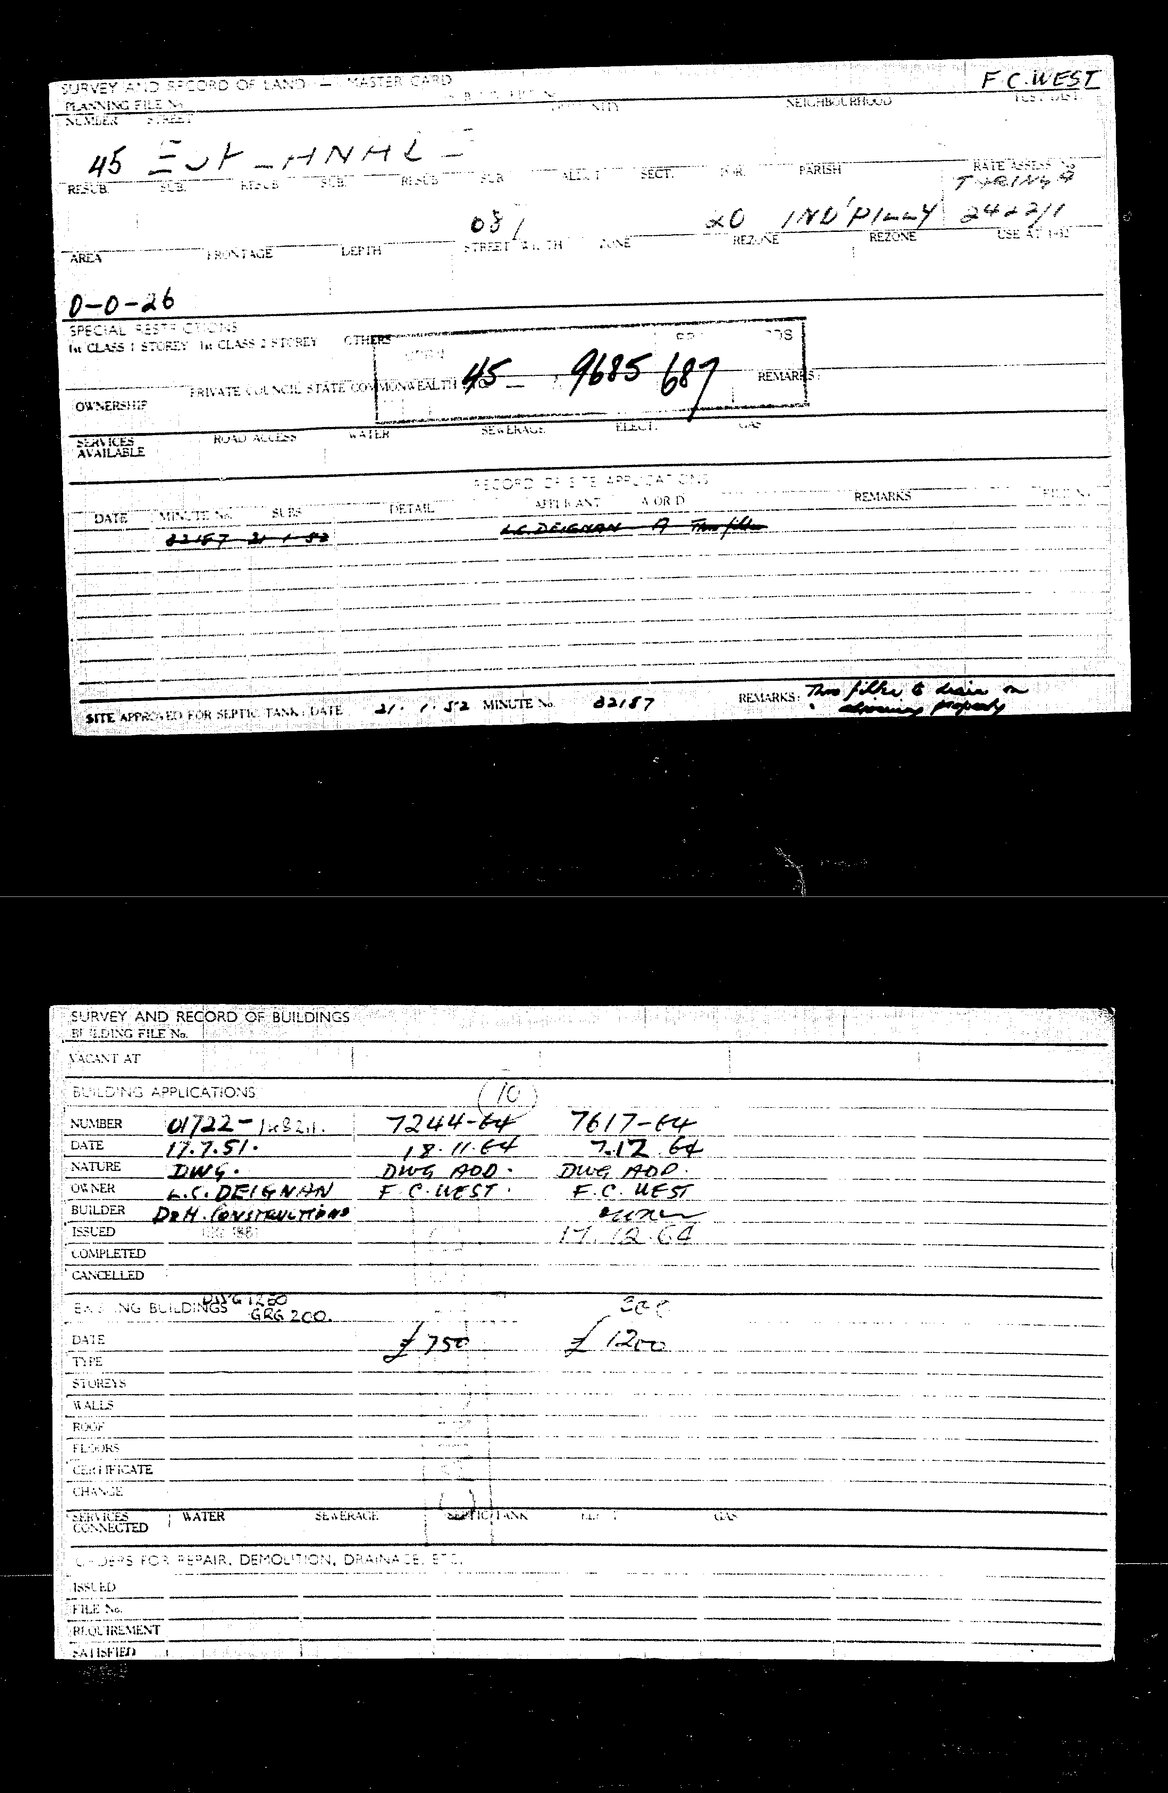 SURVEY AND RECORD OF LAND — MASTER CARD
F.C. WEST
PLANNING FILE No.
NEIGHBOURHOOD
NUMBER STREET
45
RESUB. SUB. RESUB. SUB. RESUB. SUB. ALLOT. SECT. POR. PARISH RATE ASSESS No.
081 20 IND'PILLY 2422/1
AREA FRONTAGE DEPTH STREET WIDTH ZONE REZONE REZONE USE AT
0-0-26
SPECIAL RESTRICTIONS
1st CLASS 1 STOREY 1st CLASS 2 STOREY OTHERS
45 — 9685 687
OWNERSHIP PRIVATE COUNCIL STATE COMMONWEALTH REMARKS:
SERVICES AVAILABLE ROAD ACCESS WATER SEWERAGE ELECT. GAS
RECORD OF SITE APPLICATIONS
DATE MINUTE No. SUBS DETAIL APPLICANT A OR D REMARKS FILE No.
22157 21 1 52 L.C. DEIGNAN A
SITE APPROVED FOR SEPTIC TANK: DATE 21. 1. 52 MINUTE No. 22157 REMARKS: to drain on
property
SURVEY AND RECORD OF BUILDINGS
BUILDING FILE No.
VACANT AT
BUILDING APPLICATIONS 10
NUMBER 01722- 7244-64 7617-64
DATE 17.7.51. 18.11.64 7.12.64
NATURE DWG. DWG ADD. DWG ADD.
OWNER L.C. DEIGNAN F.C. WEST. F.C. WEST
BUILDER D&H. CONSTRUCTIONS owner
ISSUED 17.12.64
COMPLETED
CANCELLED
EXISTING BUILDINGS DWG 1250
GRG 200.
DATE £750 £1200
TYPE
STOREYS
WALLS
ROOF
FLOORS
CERTIFICATE
CHANGE
SERVICES CONNECTED WATER SEWERAGE SEPTIC TANK ELECT GAS
ORDERS FOR REPAIR, DEMOLITION, DRAINAGE, ETC.
ISSUED
FILE No.
REQUIREMENT
SATISFIED